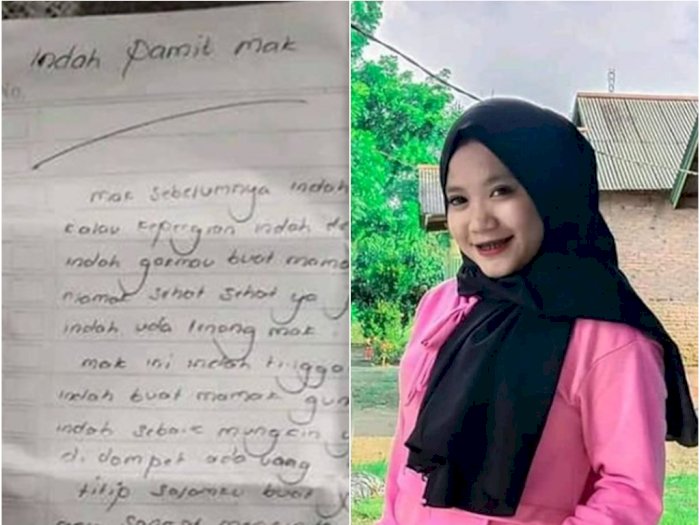 Indah pamit mak
No.
mak sebelumnya indah
kalau kepergian indah de
indah gakmau buat mama
mamak sehat sehat ya
indah uda tenang mak
mak ini indah tingga
indah buat mamak gun
indah sebaik mungkin y
di dompet ada uang
titip salamku buat